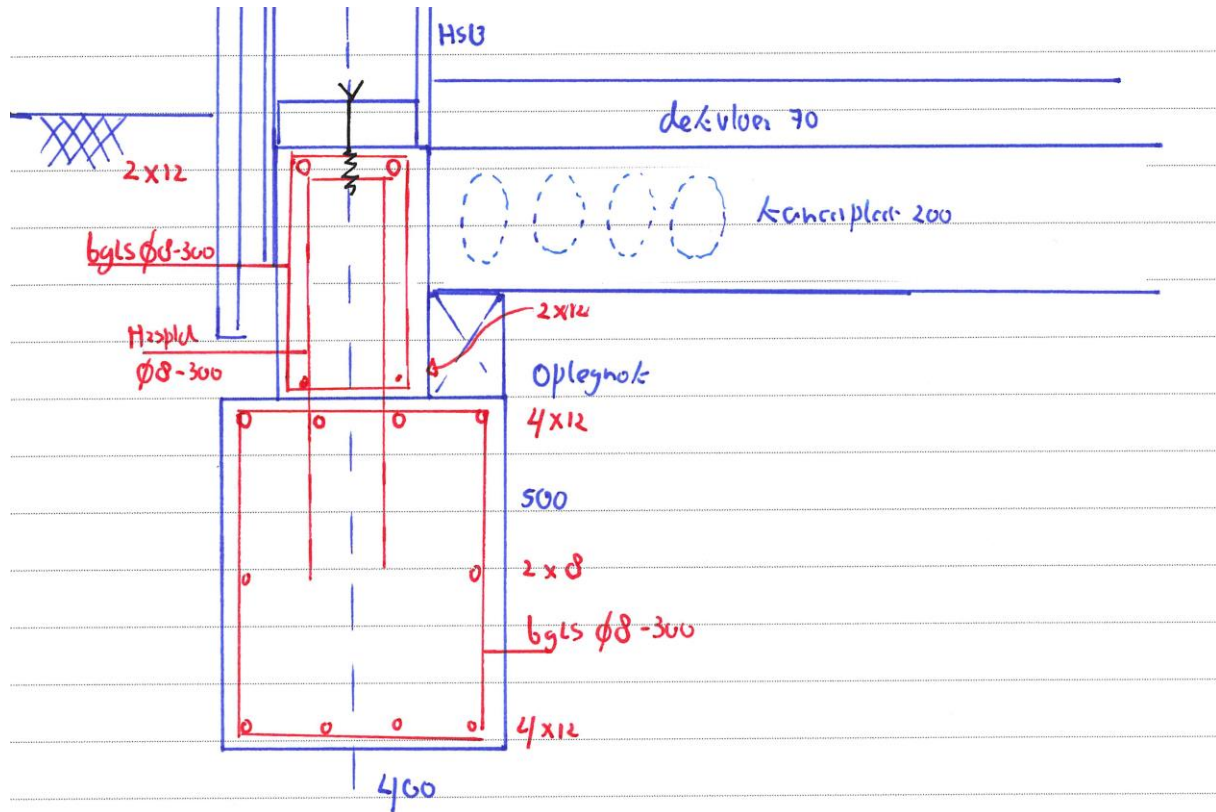 HSB
dekvloer 70
2x12
kanaalplaat 200
bgls Ø8-300
2x12
Hrspld
Ø8-300
Oplegnok
4x12
500
2x8
bgls Ø8-300
4x12
400